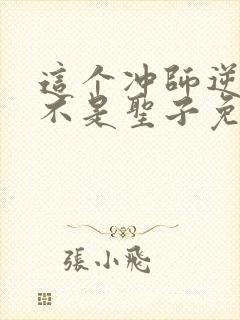 這个冲師逆
不是聖子免
張小飛